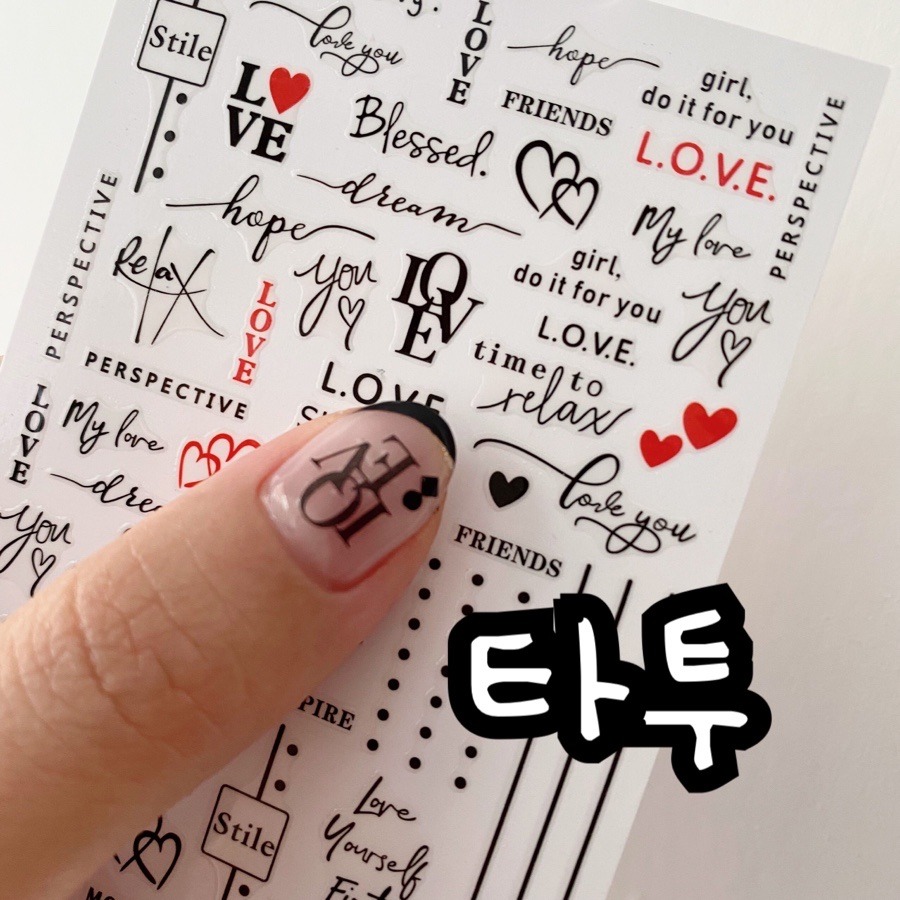 Stile
love you
LOVE
hope
girl,
do it for you
LO
VE
FRIENDS
Blessed.
L.O.V.E.
PERSPECTIVE
dream
My love
hope
PERSPECTIVE
Relax
you
LOVE
girl,
do it for you
you
LOVE
L.O.V.E.
time to
relax
PERSPECTIVE
L.O.V.E.
LOVE
My love
love you
LOVE
FRIENDS
you
타투
PIRE
Stile
Love
Yourself
First